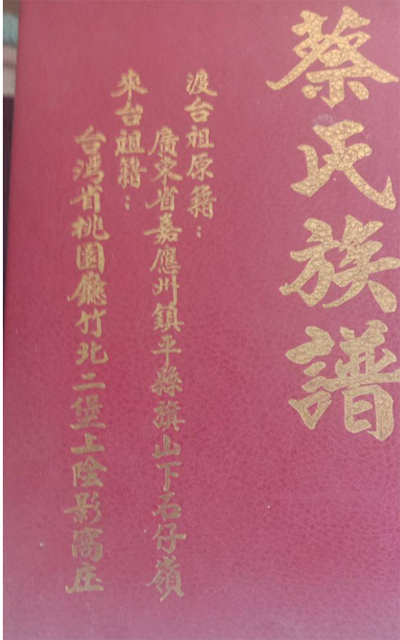 蔡氏族譜
渡台祖原籍：
廣東省嘉應州鎮平縣旗山下石仔嶺
來台祖籍：
台灣省桃園廳竹北二堡上陰影窩庄